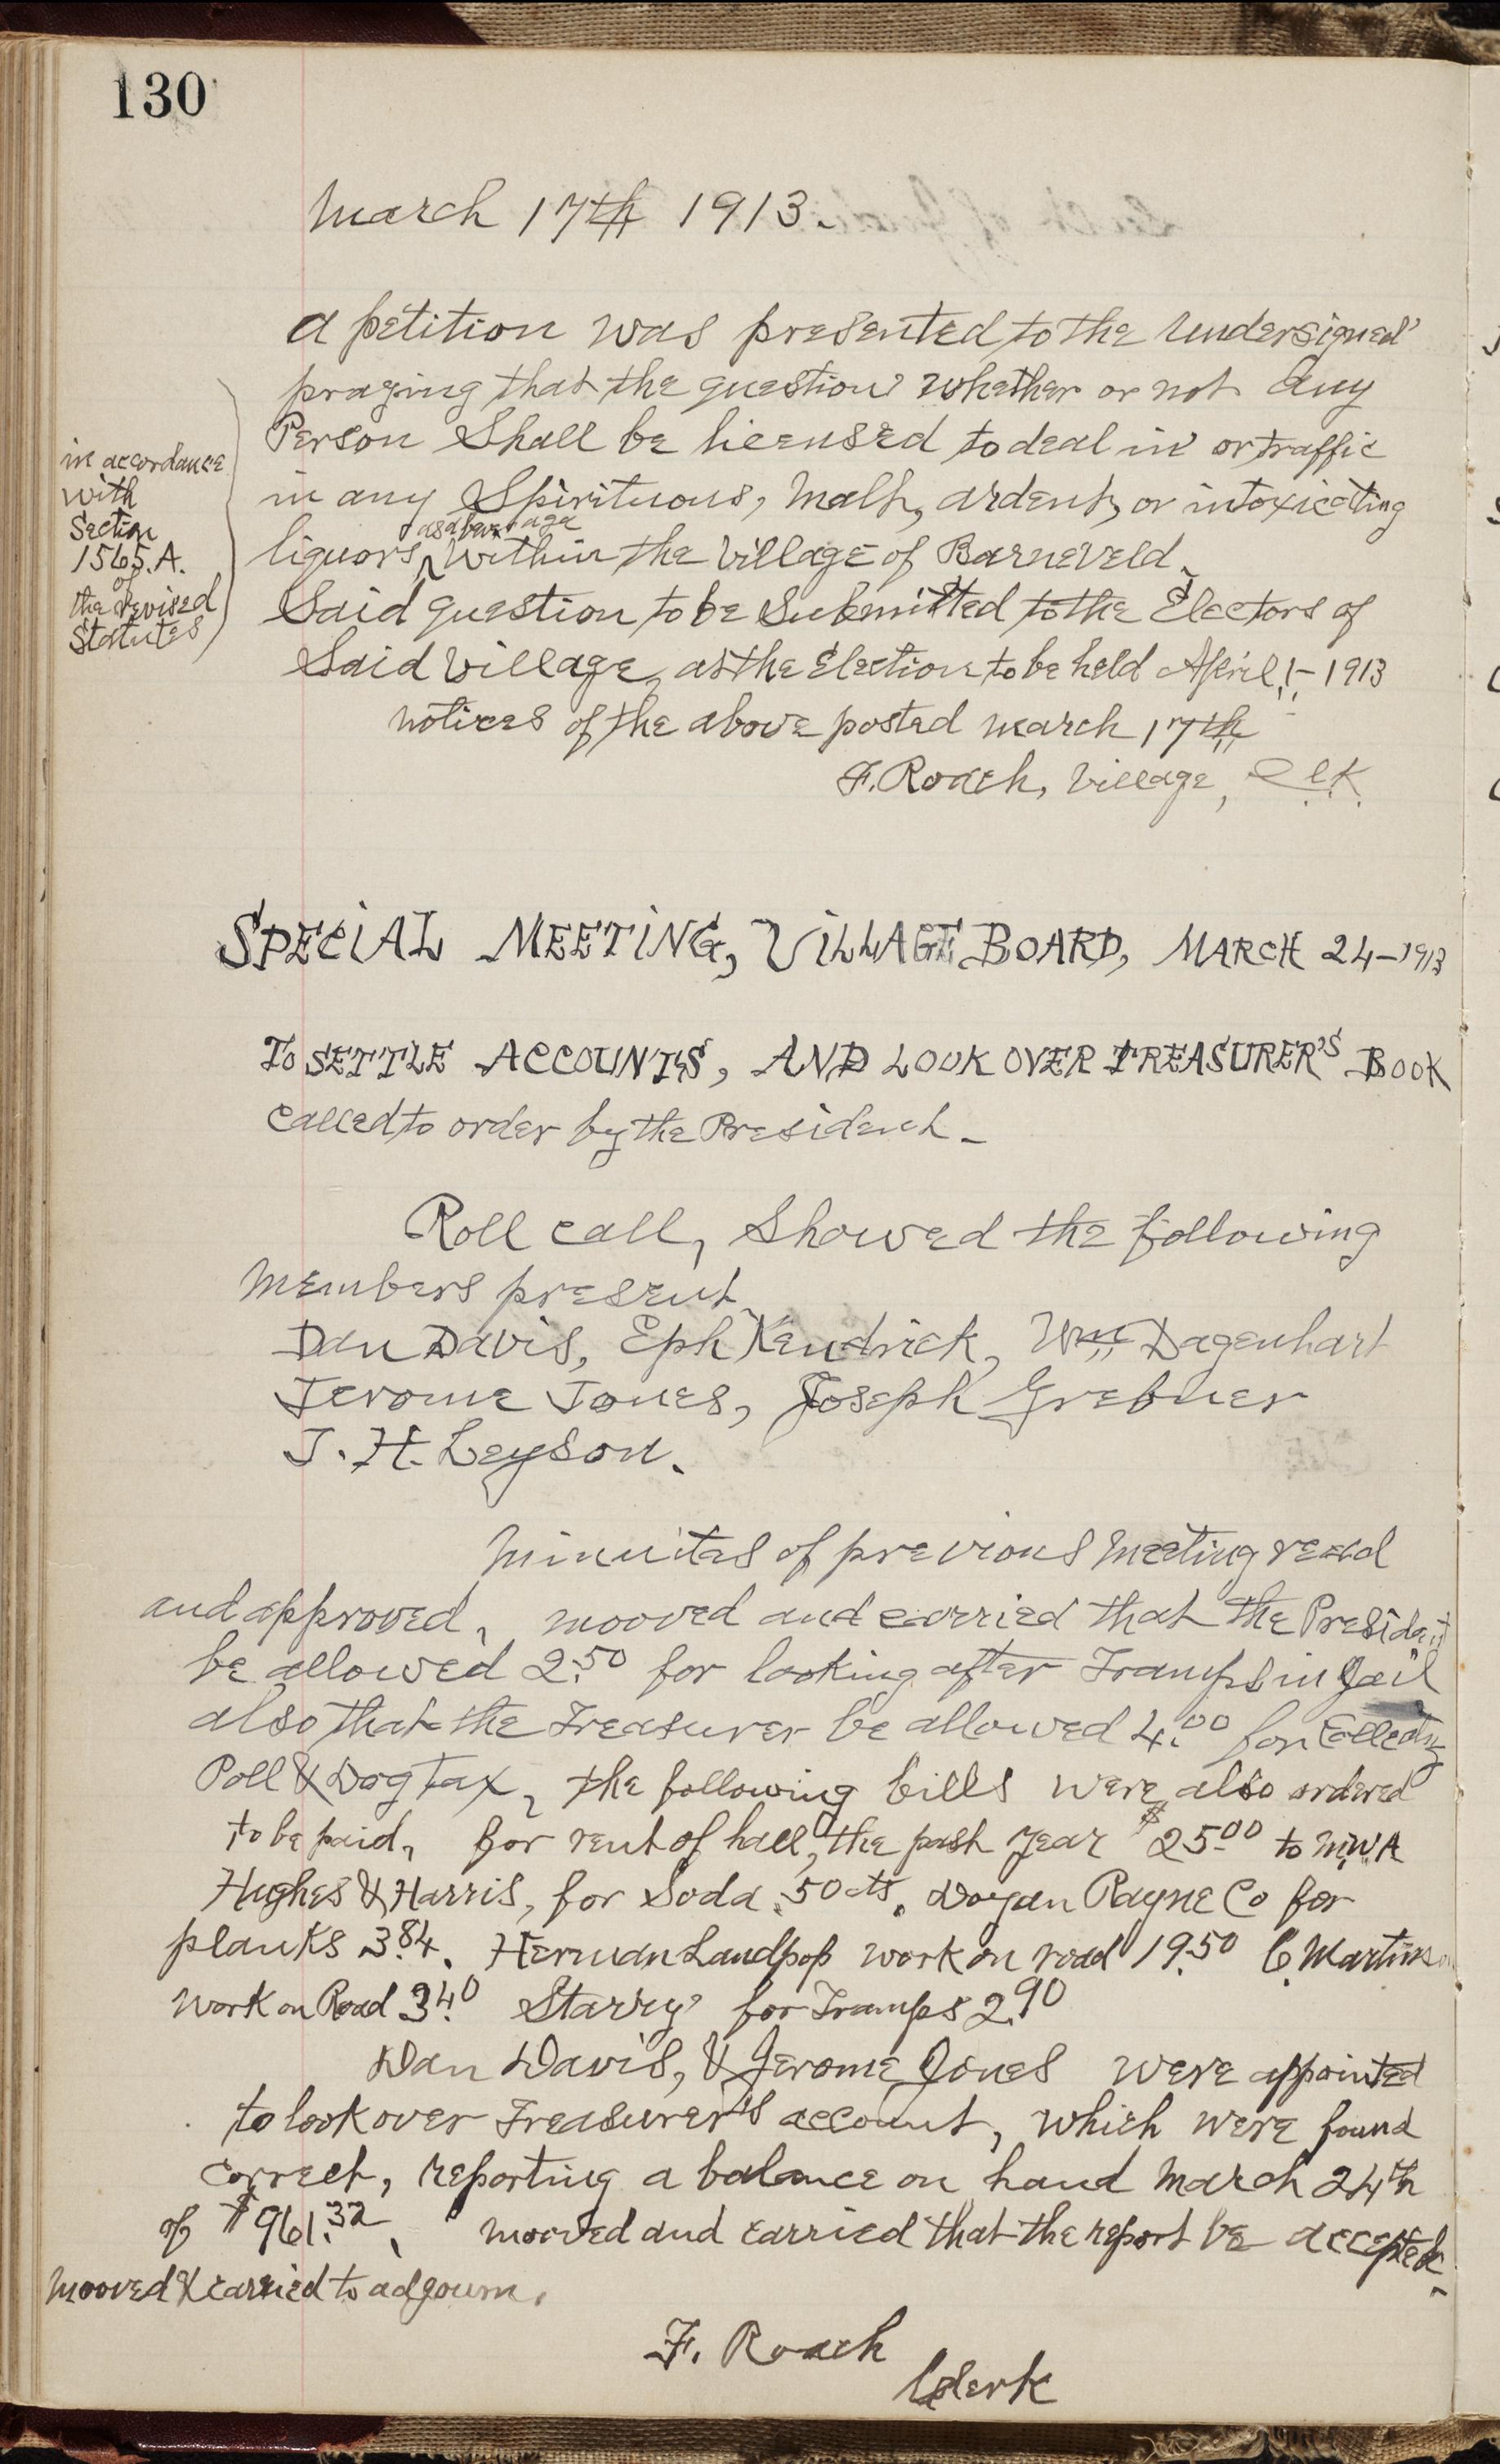 130
March 17th 1913.
a petition was presented to the undersigned
praying that the question whether or not any
Person Shall be licensed to deal in or traffic
in any Spirituous, Malt, ardent, or intoxicating
as a bevrage
liquors, within the Village of Barneveld.
Said question to be Submitted to the Electors of
Said Village, at the Election to be held April 1- 1913
notices of the above posted march 17th
F. Roach, Village, Clk.
in accordance
with
Section
1565.A.
of
the revised
Statutes
SPECIAL MEETING, VILLAGE BOARD, MARCH 24-1913
To SETTLE ACCOUNTS, AND LOOK OVER TREASURER'S BOOK
Called to order by the President -
Roll call, Showed the following
Members present
Dan Davis, Eph Kendrick, Wm Dagenhart
Jerome Jones, Joseph Grebner
J. H. Leyson.
Minuites of previous Meeting read
and approved, mooved and carried that the President
be allowed 2.50 for looking after Tramps in Jail
also that the Treasurer be allowed 4.00 for Collectg
Poll & Dog Tax, the following bills were also ordered
to be paid, for rent of hall, the past year $25.00 to M.W.A
Hughes & Harris, for Soda .50 cts. Dogan Rayne Co for
planks 3.84. Herman Landpop work on road 19.50 C. Martinson
Work on Road 3.40 Starry for Tramps 2.90
Dan Davis, & Jerome Jones were appointed
to look over Treasurer's account, which were found
correct, reporting a balance on hand March 24th
of $961.32, mooved and carried that the report be accepted.
mooved & carried to adjourn.
F. Roach
Clerk